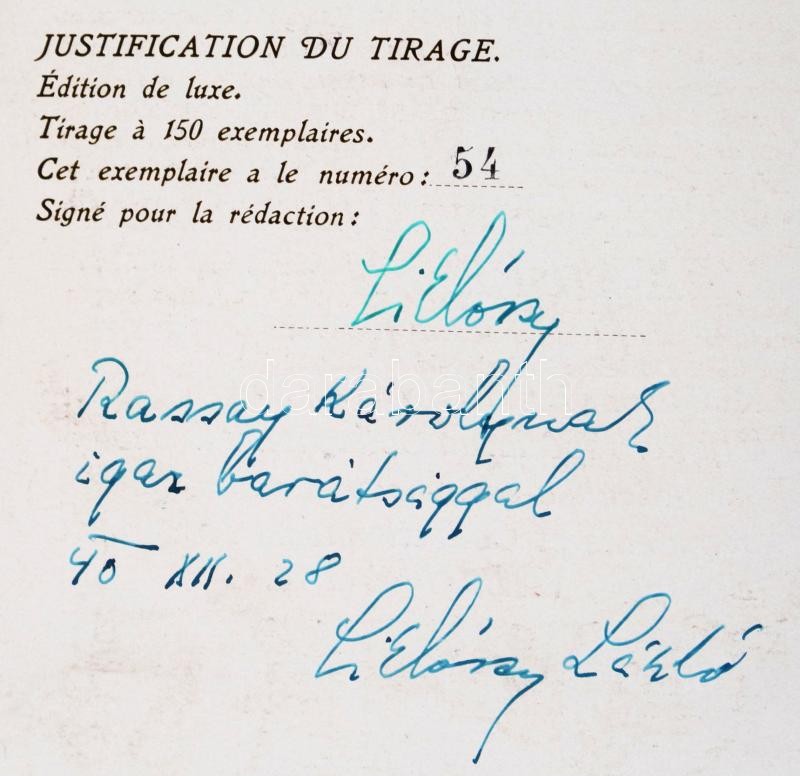 JUSTIFICATION DU TIRAGE.
Édition de luxe.
Tirage à 150 exemplaires.
Cet exemplaire a le numéro: 54
Signé pour la rédaction:
darabanth
Rassay Károlynak
igaz barátsággal
40 XII. 28
László